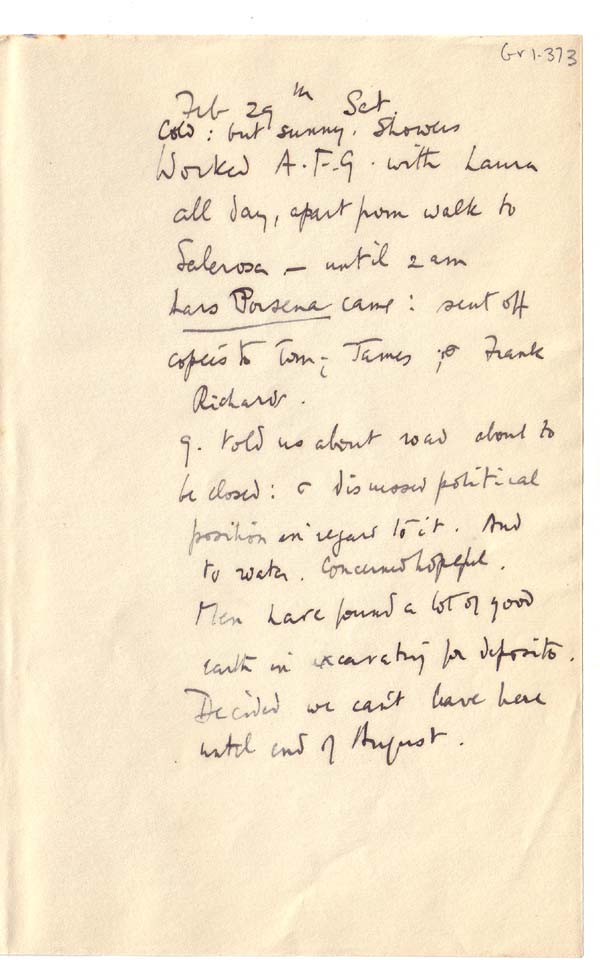 Gv1-373
Feb 29th Sat.
Cold: but sunny. Showers
Worked A.F-G. with Laura
all day, apart from walk to
Salerosa – until 2 am
Lars Porsena came: sent off
copeis to Tom; James; & Frank
Richards.
G. told us about road about to
be closed: & discussed political
position in regard to it. And
to water. Concerned hopeful.
Men have found a lot of good
earth in excavating for deposito.
Decided we can't leave here
until end of August.